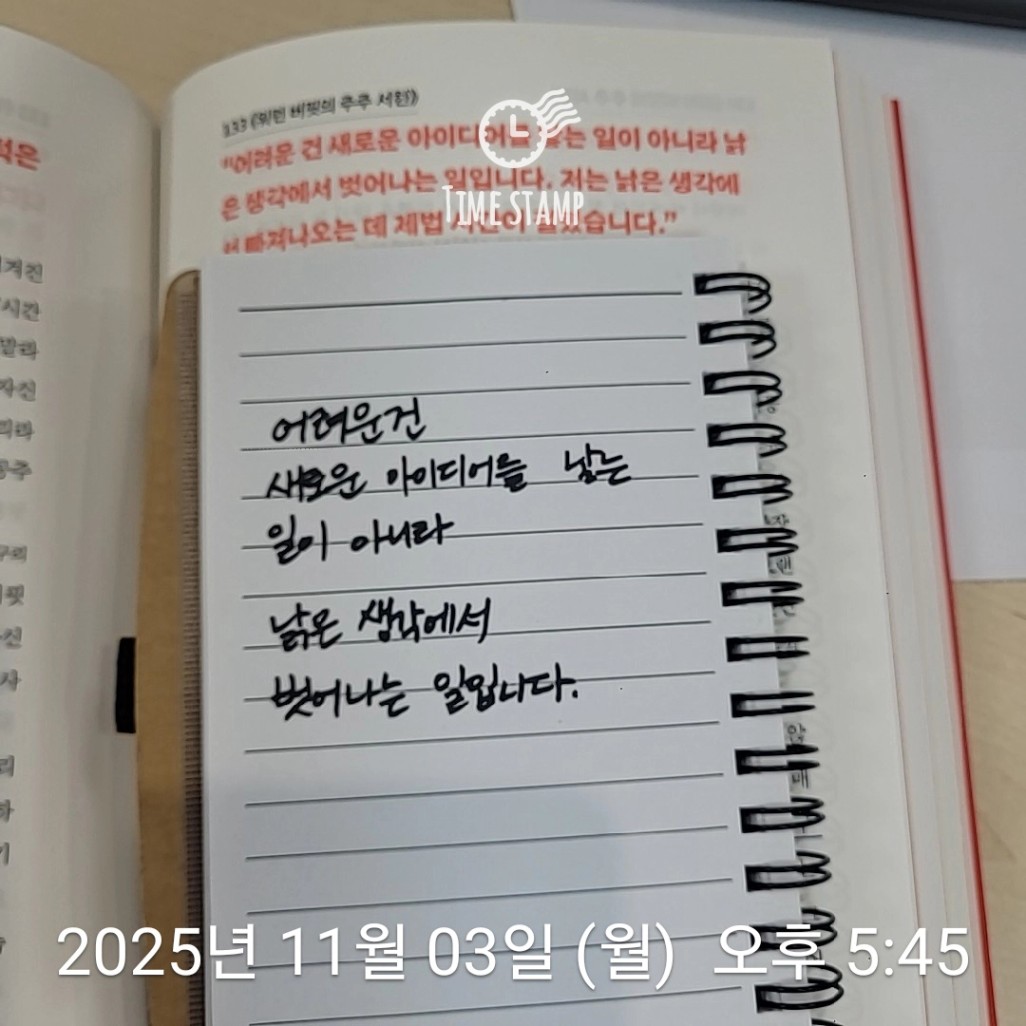 133 《워런 버핏의 주주 서한》
"어려운 건 새로운 아이디어를 낳는 일이 아니라 낡
은 생각에서 벗어나는 일입니다. 저는 낡은 생각에
서 빠져나오는 데 제법 시간이 걸렸습니다."
TIME STAMP
어려운건
새로운 아이디어를 낳는
일이 아니라
낡은 생각에서
벗어나는 일입니다.
2025년 11월 03일 (월) 오후 5:45